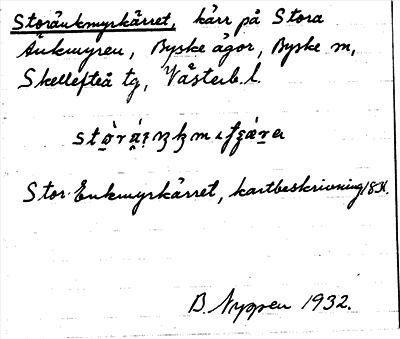 Storänkmyrkärret, kärr på Stora
Änkmyren, Byske ägor, Byske sn,
Skellefteå tg, Västerb. l.
Stor Enkmyrkärret, kartbeskrivning
B. Nyppen 1932.